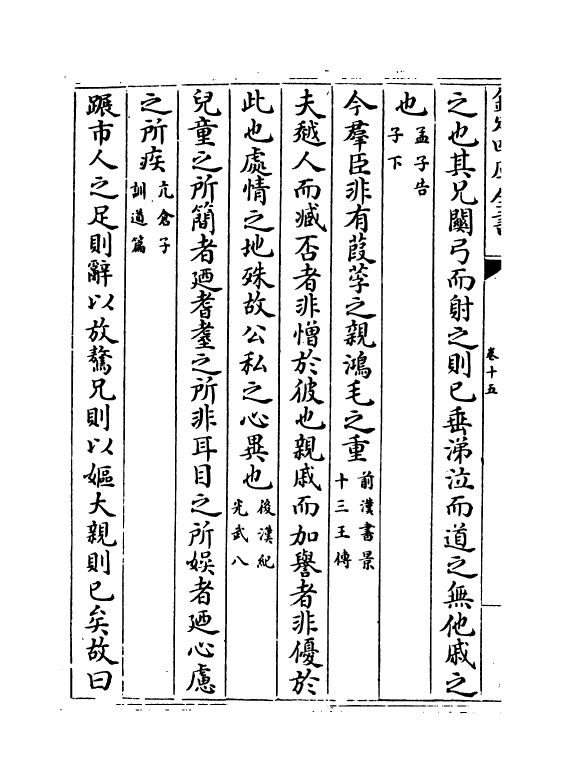 欽定四庫全書
卷十五
之也其兄關弓而射之則已垂涕泣而道之無他戚之
也孟子告子下
今羣臣非有葭莩之親鴻毛之重前漢書景十三王傳
夫越人而臧否者非憎於彼也親戚而加譽者非優於
此也處情之地殊故公私之心異也後漢紀光武八
兒童之所簡者廼耆耋之所非耳目之所娛者廼心慮
之所疾亢倉子訓道篇
蹍市人之足則辭以放驁兄則以嫗大親則已矣故曰